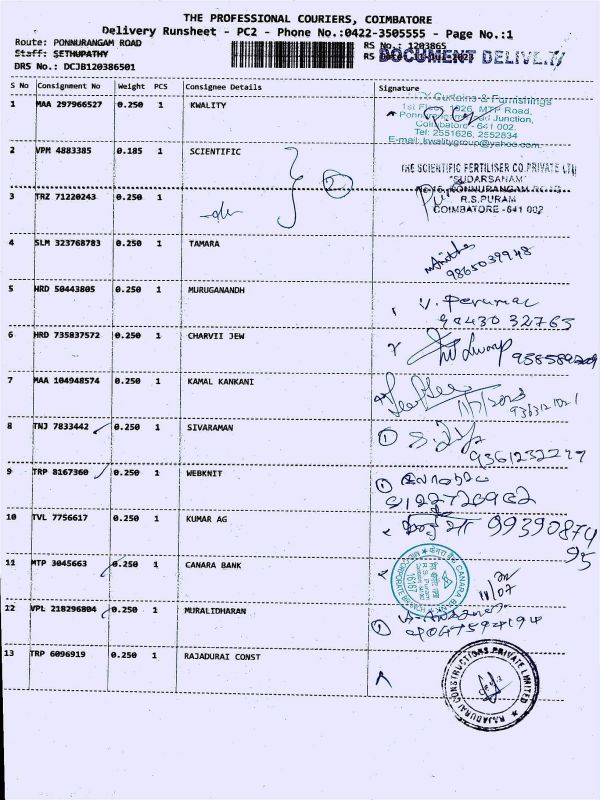 THE PROFESSIONAL COURIERS, COIMBATORE
Delivery Runsheet - PC2 - Phone No.:0422-3505555 - Page No.:1
Route: PONNURANGAM ROAD
RS No.: 1203865
Staff: SETHUPATHY
RS
DOCUMENT DELIVE
DRS No.: DCJB120386501
S No Consignment No Weight PCS Consignee Details Signature
1 MAA 297966527 0.250 1 KWALITY
Curtains & Furnishings
1st Floor, 1026, MTP Road,
Junction,
Coimbatore - 641 002.
Tel: 2551626, 2552834
E-mail: kwalitygroup@yahoo.com
2 VPM 4883385 0.185 1 SCIENTIFIC
2
THE SCIENTIFIC FERTILISER CO. PRIVATE LTD
"SUDARSANAM"
PONNURANGAM ROAD
R.S.PURAM
COIMBATORE - 641 002
3 TRZ 71220243 0.250 1
4 SLM 323768783 0.250 1 TAMARA
9865039948
5 HRD 50443805 0.250 1 MURUGANANDH
V. Perumal
99430 32765
6 HRD 735837572 0.250 1 CHARVII JEW
7 MAA 104948574 0.250 1 KAMAL KANKANI
8 TNJ 7833442 0.250 1 SIVARAMAN
1
9361232277
9 TRP 8167360 0.250 1 WEBKNIT
1
10 TVL 7756617 0.250 1 KUMAR AG
99390874
95
11 MTP 3045663 0.250 1 CANARA BANK
CANARA BANK
R.S. Puram
11/07
12 VPL 218296804 0.250 1 MURALIDHARAN
1
13 TRP 6096919 0.250 1 RAJADURAI CONST
RAJADURAI CONSTRUCTIONS PRIVATE LIMITED